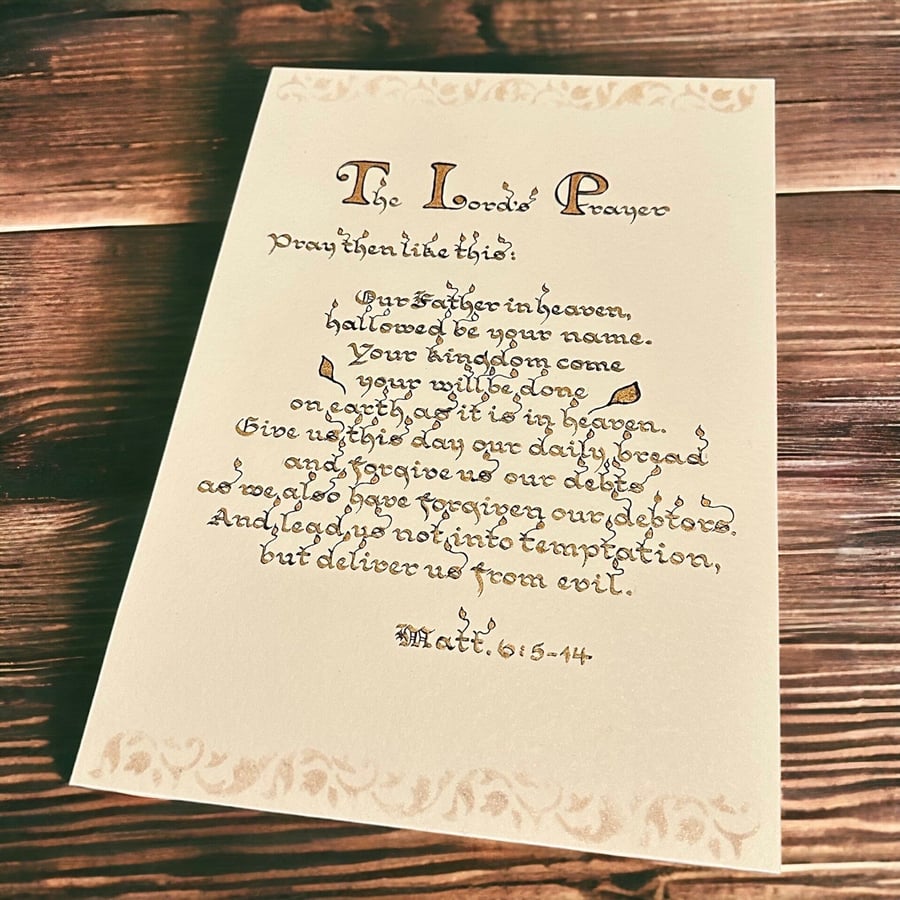 The Lord's Prayer
Pray then like this:
Our Father in heaven,
hallowed be your name.
Your kingdom come
your will be done
on earth as it is in heaven.
Give us this day our daily bread
and forgive us our debts
as we also have forgiven our debtors.
And lead us not into temptation,
but deliver us from evil.
Matt. 6:5-14